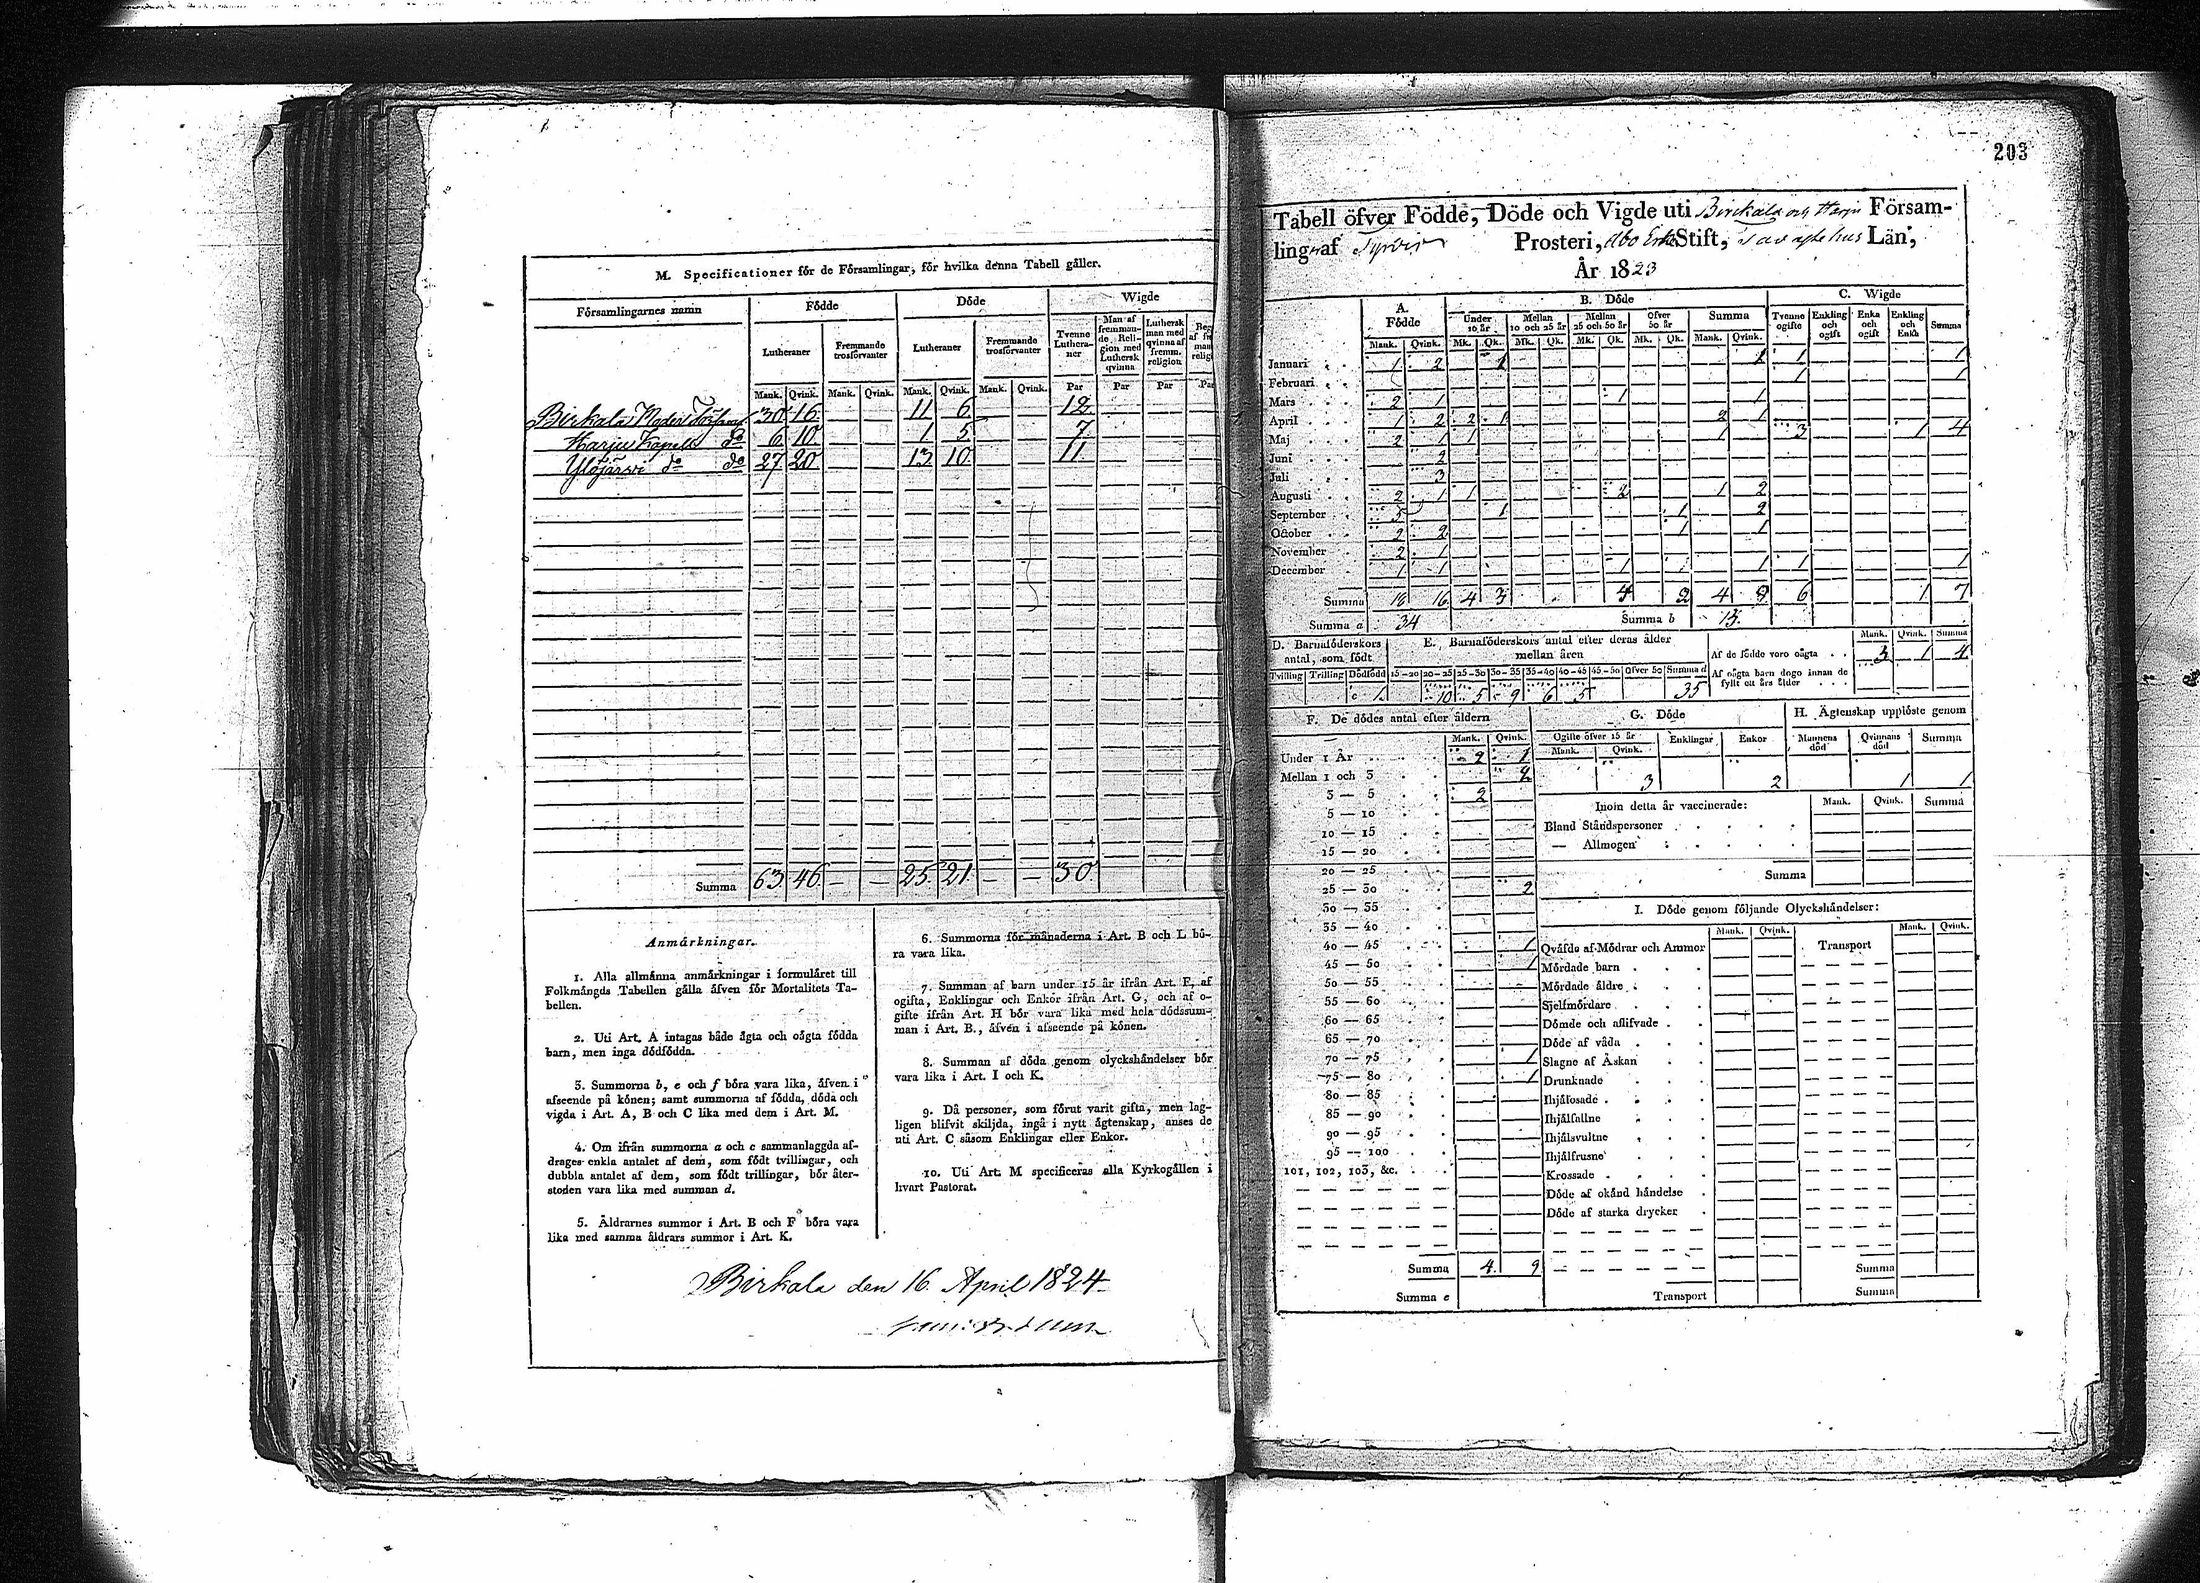 M. Specificationer för de Församlingar, för hvilka denna Tabell gäller.
Församlingarnes namn | Födde | Döde | Wigde
Lutheraner | Fremmande trosförvanter | Lutheraner | Fremmande trosförvanter | Tvenne Lutheraner | Man af fremmande Religion med Luthersk qvinna | Luthersk man med qvinna af fremm. religion
Mank. Qvink. Mank. Qvink. Mank. Qvink. Mank. Qvink. Par Par Par Par
Birkala Moder 30 16 11 6 12
Harju Kapell do 6 10 1 5 7
Ylöjärvi do do 27 20 13 10 11
Summa 63 46 — — 25 21 — — 30
Anmärkningar.
1. Alla allmänna anmärkningar i formuläret till
Folkmängds Tabellen gälla äfven för Mortalitets Ta-
bellen.
2. Uti Art. A intagas både ägta och oägta födda
barn, men inga dödfödda.
3. Summorna b, e och f böra vara lika, äfven i
afseende på könen; samt summorna af födda, döda och
vigda i Art. A, B och C lika med dem i Art. M.
4. Om ifrån summorna a och c sammanlaggda af-
drages enkla antalet af dem, som födt tvillingar, och
dubbla antalet af dem, som födt trillingar, bör åter-
stoden vara lika med summan d.
5. Åldrarnes summor i Art. B och F böra vara
lika med samma åldrars summor i Art. K.
6. Summorna för månaderna i Art. B och L bö-
ra vara lika.
7. Summan af barn under 15 år ifrån Art. F, af
ogifta, Enklingar och Enkor ifrån Art. G, och af o-
gifte ifrån Art. H bör vara lika med hela dödssum-
man i Art. B., äfven i afseende på könen.
8. Summan af döda genom olyckshändelser bör
vara lika i Art. I och K.
9. Då personer, som förut varit gifta, men lag-
ligen blifvit skiljda, ingå i nytt ägtenskap, anses de
uti Art. C såsom Enklingar eller Enkor.
10. Uti Art. M specificeras alla Kyrkogällen i
hvart Pastorat.
Birkala den 16. April 1824
203
Tabell öfver Födde, Döde och Vigde uti Birckala och Harju Försam-
ling af Tyrvis Prosteri, Åbo Erke Stift, Tavastehus Län,
År 1823
A. Födde | B. Döde | C. Wigde
Under 10 år | Mellan 10 och 25 år | Mellan 25 och 50 år | Öfver 50 år | Summa | Tvenne ogifte | Enkling och ogift | Enka och ogift | Enkling och Enka | Summa
Mank. Qvink. Mk. Qk. Mk. Qk. Mk. Qk. Mk. Qk. Mank. Qvink.
Januari 1 2 1 1 1 1
Februari 1 1
Mars 2 1 1 1
April 1 2 2 1 2 1
Maj 2 1 1 1 3 1 4
Juni 2
Juli 3
Augusti 2 1 1 2 1 2
September 5 1 1 2
October 2 2 1 1
November 2 1
December 1 1 1 1 1 1 1
Summa 16 4 3 2 4 9 6 1 7
Summa a 34 Summa b 13
D. Barnaföderskors antal, som födt
Tvilling Trilling Dödfödd
c 1
E. Barnaföderskors antal efter deras ålder mellan åren
15-20 20-25 25-30 30-35 35-40 40-45 45-50 Öfver 50 Summa d
10 5 9 6 5 35
Mank. Qvink. Summa
Af de födde voro oägta 3 1 4
Af oägta barn dogo innan de fyllt ett års ålder
F. De dödes antal efter åldern
Mank. Qvink.
Under 1 År 2 1
Mellan 1 och 3 2
3 — 5 2
5 — 10
10 — 15
15 — 20
20 — 25
25 — 30 2
30 — 35
35 — 40
40 — 45 1
45 — 50 1
50 — 55
55 — 60
60 — 65
65 — 70
70 — 75 1
75 — 80 1
80 — 85
85 — 90
90 — 95
95 — 100
101, 102, 103, &c.
Summa 4 9
Summa e
G. Döde
Ogifte öfver 15 år | Enklingar | Enkor
Mank. Qvink.
3 2
H. Ägtenskap upplöste genom
Mannens död | Qvinnans död | Summa
1 1
Inom detta år vaccinerade: Mank. Qvink. Summa
Bland Ståndspersoner
— Allmogen
Summa
I. Döde genom följande Olyckshändelser:
Mank. Qvink. Mank. Qvink.
Qväfde af Mödrar och Ammor Transport
Mördade barn
Mördade äldre
Sjelfmördare
Dömde och aflifvade
Döde af våda
Slagne af Åskan
Drunknade
Ihjälosade
Ihjälfallne
Ihjälsvultne
Ihjälfrusne
Krossade
Döde af okänd händelse
Döde af starka drycker
Summa
Transport Summa